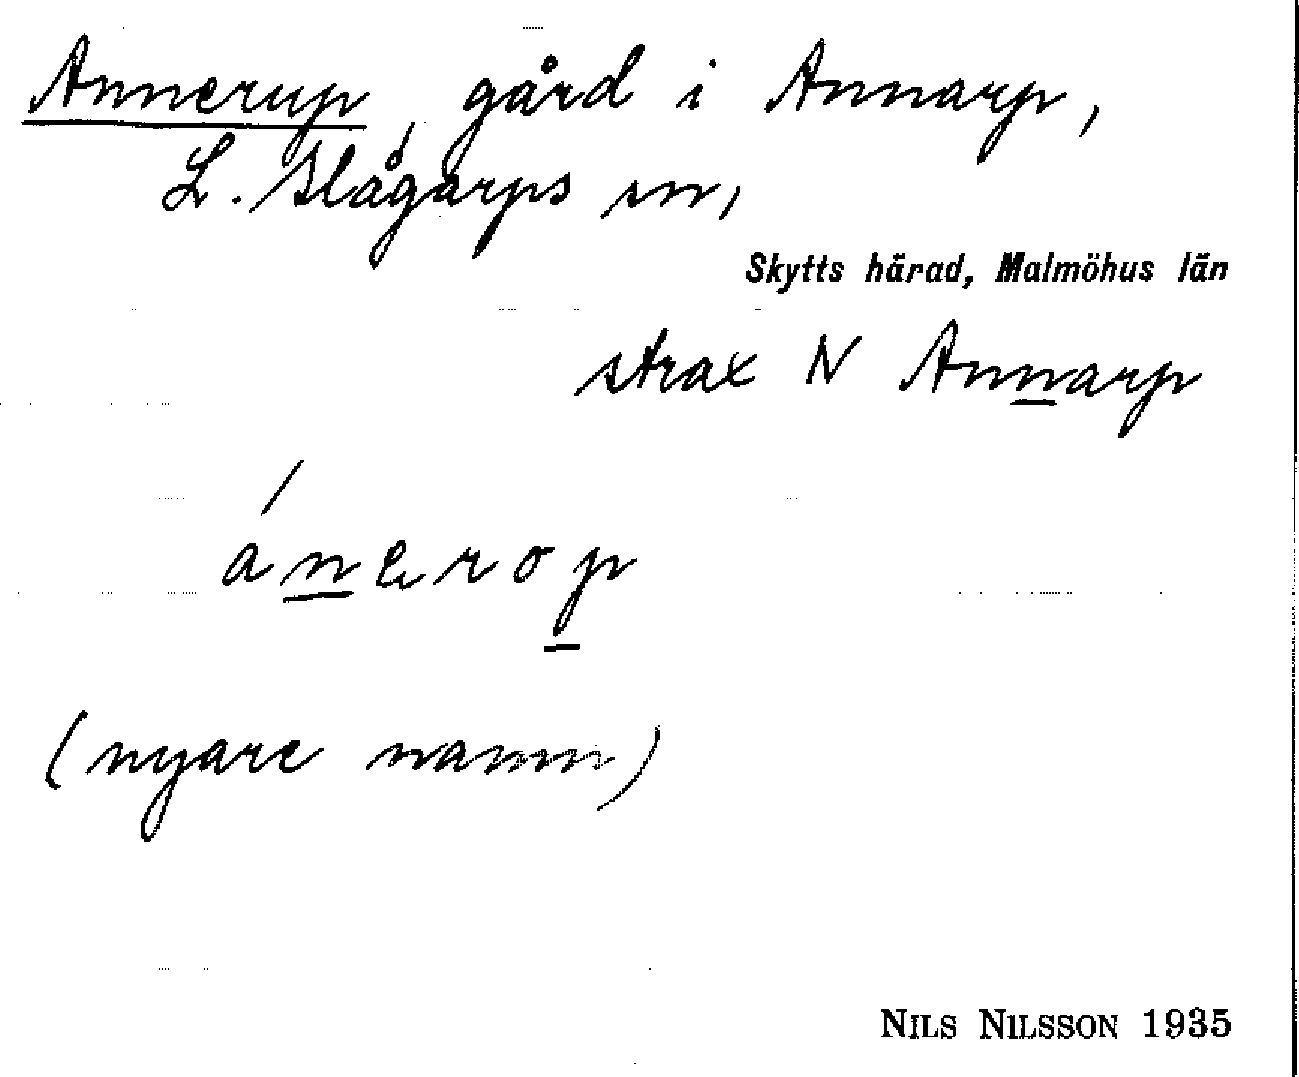 Annerup, gård i Annarp,
L. Slågarps sn,
Skytts härad, Malmöhus län
strax N Annarp
ánerop
(nyare namn)
NILS NILSSON 1935